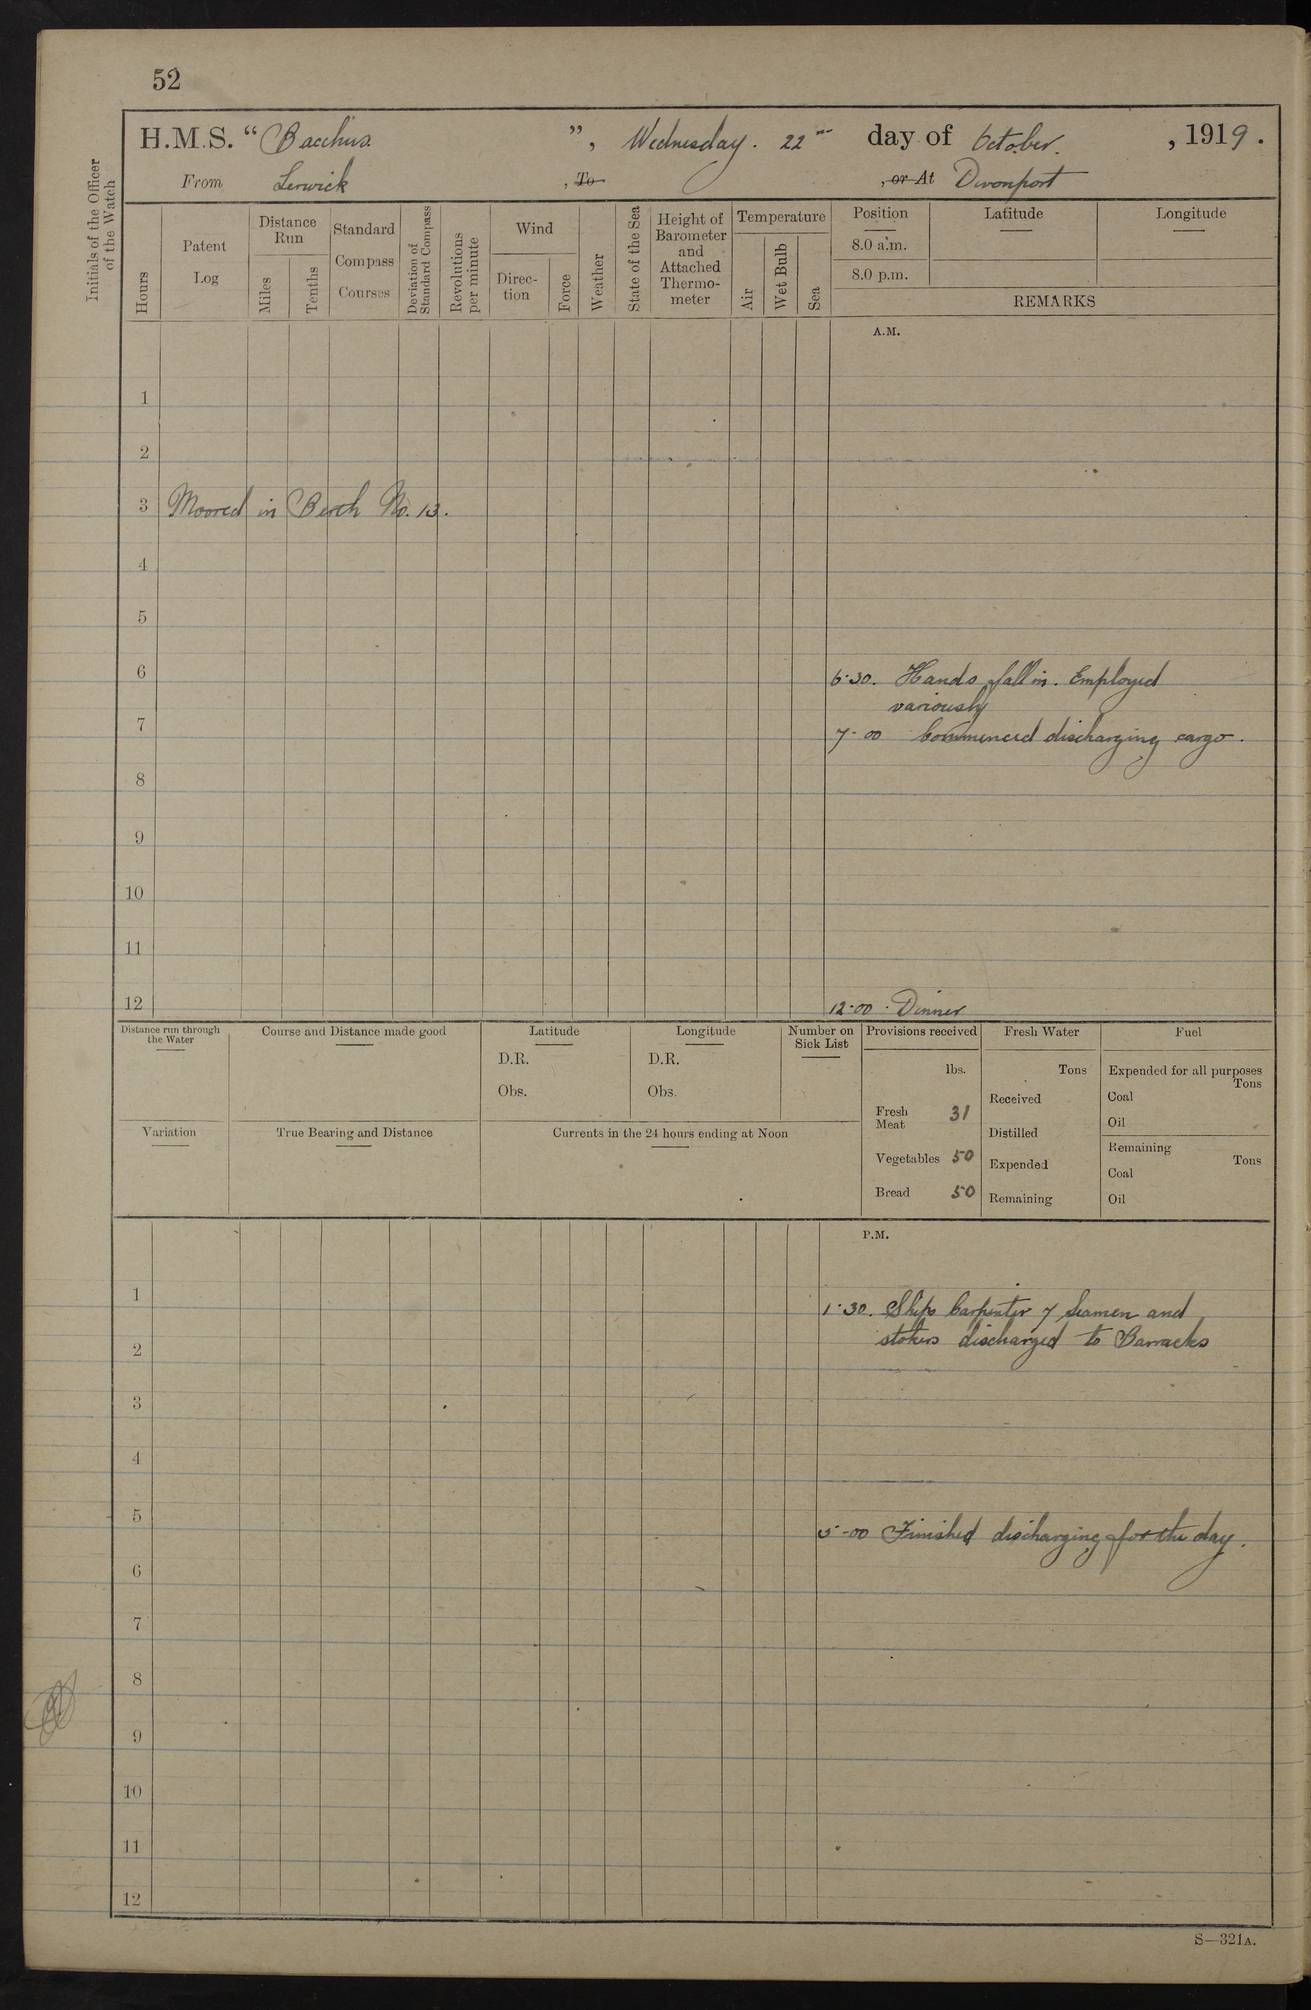 52
H.M.S. “ Bacchus ”, Wednesday. 22nd day of October. , 1919.
From Lerwick , To , or At Devonport
Initials of the Officer of the Watch
Hours
Patent Log
Distance Run
Miles
Tenths
Standard Compass Courses
Deviation of Standard Compass
Revolutions per minute
Wind
Direc-tion
Force
Weather
State of the Sea
Height of Barometer and Attached Thermo-meter
Temperature
Air
Wet Bulb
Sea
Position
8.0 a.m.
8.0 p.m.
Latitude
Longitude
REMARKS
A.M.
1
2
3 Moored in Berth No. 13.
4
5
6
6.30. Hands fall in. Employed
variously
7
7-00 Commenced discharging cargo.
8
9
10
11
12
12.00. Dinner
Distance run through the Water
Course and Distance made good
Latitude
D.R.
Obs.
Longitude
D.R.
Obs.
Number on Sick List
Provisions received
lbs.
Fresh Meat 31
Vegetables 50
Bread 50
Fresh Water
Tons
Received
Distilled
Expended
Remaining
Fuel
Expended for all purposes
Tons
Coal
Oil
Remaining
Tons
Coal
Oil
Variation
True Bearing and Distance
Currents in the 24 hours ending at Noon
P.M.
1
1.30. Ships Carpenter 7 Seamen and
stokers discharged to Barracks
2
3
4
5
5-00 Finished discharging for the day.
6
7
8
9
10
11
12
S—321A.